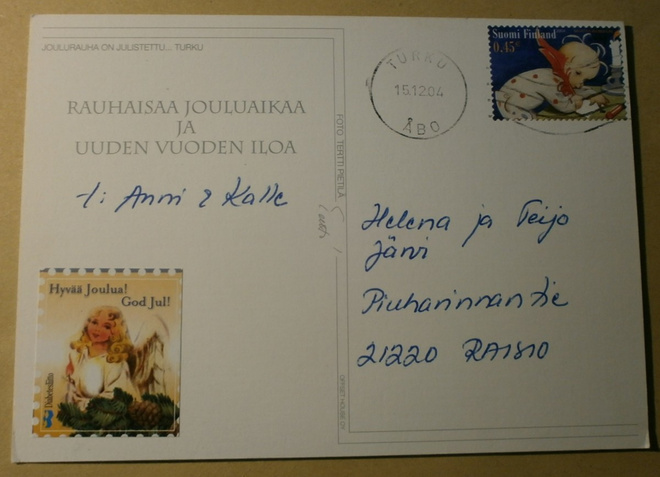 JOULURAUHA ON JULISTETTU... TURKU
RAUHAISAA JOULUAIKAA
JA
UUDEN VUODEN ILOA
t: Anni & Kalle
Hyvää Joulua!
God Jul!
Diabetesliitto
FOTO TERTTI PIETILÄ
OFFSET HOUSE OY
TURKU
15.12.04
ÅBO
Suomi Finland
0,45€
Helena ja Teijo
Järvi
Piuharinnantie
21220 RAISIO